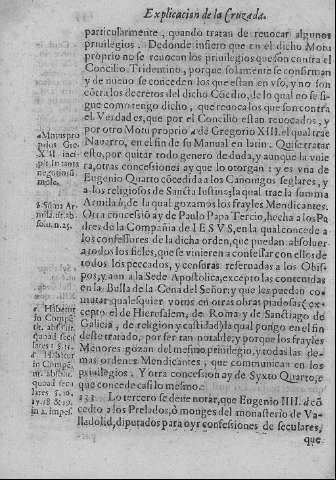 Explicacion de la Cruzada.
particularmente, quando tratan de reuocar algunos
priuilegios. Dedonde infiero que en el dicho Motu
proprio no se reuocan los priuilegios que son contra el
Concilio Tridentino, porque solamente se confirman
y de nueuo se conceden los que estan en vso, y no son
cōtra los decretos del dicho Cōcilio, de lo qual no se si-
gue como tengo dicho, que reuoca los que son contra
el. Verdad es, que por el Concilio estan reuocados, y
por otro Motu proprio a de Gregorio XIII. el qual trae
Nauarro, en el fin de su Manual en latin. Quise tratar
esto, por quitar todo genero de duda, y aunque la vuie
ra, otras concessiones ay que lo otorgan: y es vna de
Eugenio Quarto cōcedida a los Canonigos seglares, y
a los religiosos de Sancta Iustina; la qual trae la summa
Armila b, de la qual gozamos los frayles Mendicantes.
Otra concessiō ay de Paulo Papa Tercio, hecha a los Pa
dres de la Compañia de IESVS, en la qual concede a
los confessores de la dicha orden, que puedan absoluer
a todos los fieles, que se vinieren a confessar con ellos de
todos los peccados, y censuras reseruadas a los Obis-
pos, y aun a la Sede Apostolica, excepto las contenidas
en la Bulla de la Cena del Señor: y que les puedan co-
mutar qualesquier votos en otras obras piadosas (ex-
cepto el de Hierusalem, de Roma y de Sanctiago de
Galicia, de religion y castidad) la qual pongo en el fin
deste tratado, por ser tan notable, y porque los frayles
Menores gozan del mesmo priuilegio, y todas las de-
mas ordenes Mendicantes, que communican en los
priuilegios. Y otra concession ay de Syxto Quarto, c
que concede casi lo mesmo.
133 Lo tercero se deue notar, que Eugenio IIII. d cō
cedio a los Prelados, ò monges del monasterio de Va-
lladolid, diputados para oyr confessiones de seculares,
que
a Motus pro
prius Gre.
XIII inci-
pit. In tanta
negotiorū
mole.
b Sūma Ar
mila. de ab-
solu. n. 25.
c Habetur
in Compē.
tit. absolut.
quoad secu
lares §. 16.
d Habetur
in Compē.
tit. absolut.
quoad secu
lares §. 10.